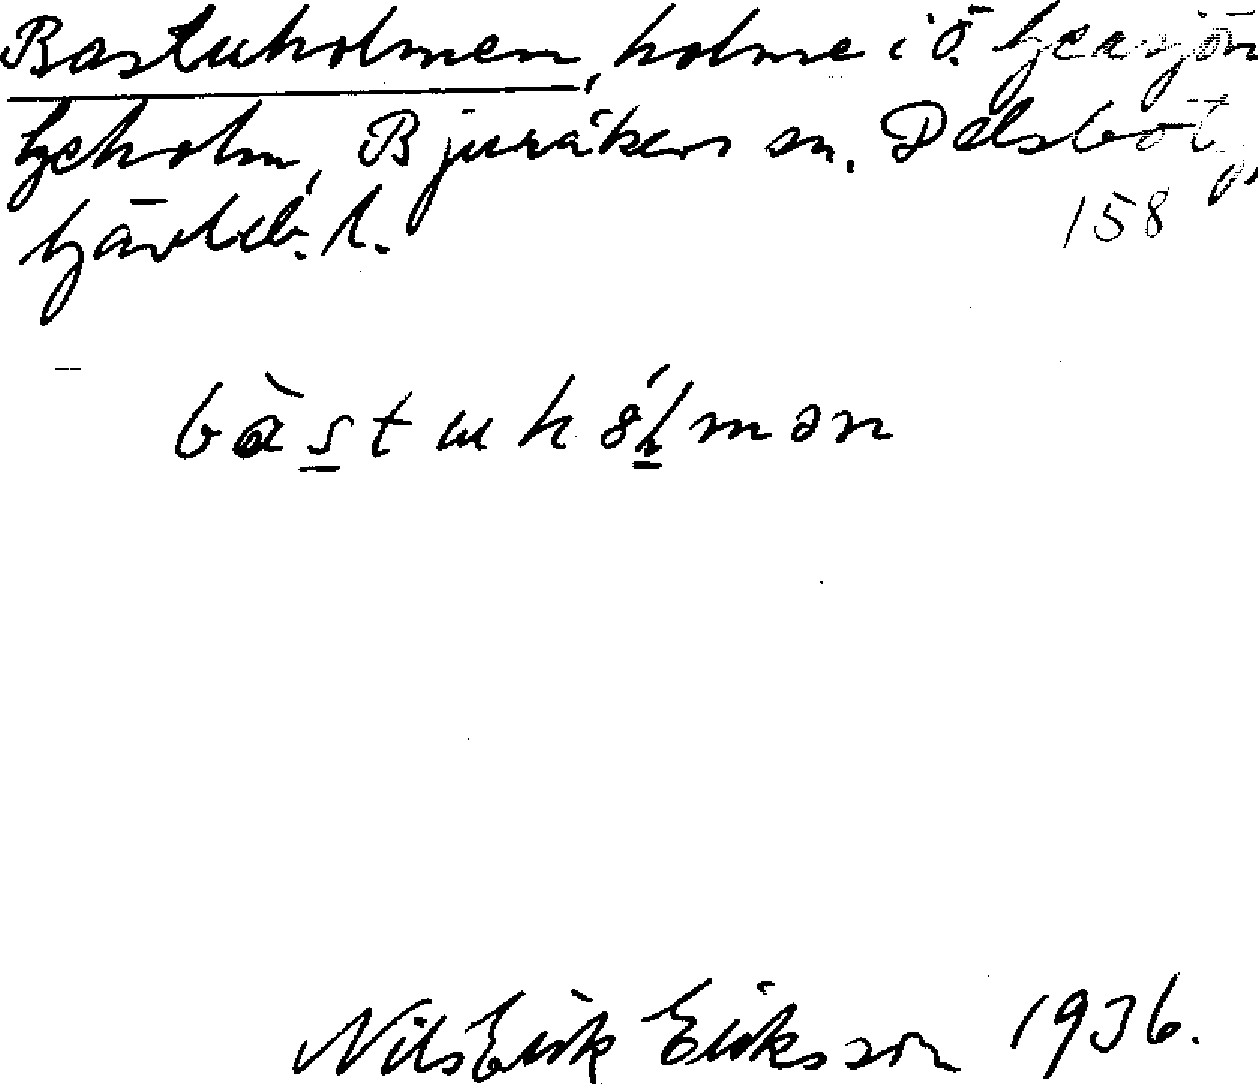 Bastuholmen, holme i Ö. Geasjön
Geholm, Bjuråkers sn, Delsbo tg,
Gävleb. l.
158
bàstuhólmən
Nils Erik Eriksson 1936.